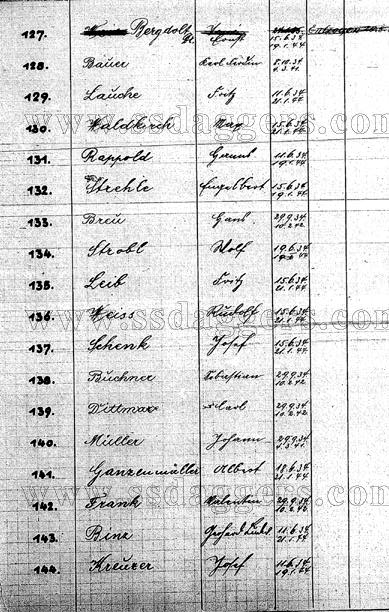 127. Bergdolt Ernst 15.6.34 19.1.44
128. Bauer Karl 8.10.34 4.3.41
129. Lauche Fritz 11.6.34 21.1.44
130. Waldkirch May 15.6.34 21.1.44
131. Rappold 11.6.34 19.1.44
132. Strehle Engelbert 15.6.34 19.1.44
133. Breu Hans 29.9.34 10.2.42
134. Strobl Wolf 19.6.34
135. Leib Fritz 15.6.34 21.1.44
136. Weiss Rudolf 15.6.34 21.1.44
137. Schenk Josef 15.6.34 21.1.44
138. Büchner Sebastian 29.9.34 10.2.42
139. Dittmar Carl 29.9.34 10.2.42
140. Müller Johann 29.9.34 4.3.41
141. Ganzenmüller Albert 19.6.34 21.1.44
142. Frank Valentin 29.9.34
143. Binz Gerhard 11.6.34 21.1.44
144. Kreuzer Josef 11.6.34 19.1.44
www.ssdaggers.com
www.ssdaggers.com
www.ssdaggers.com